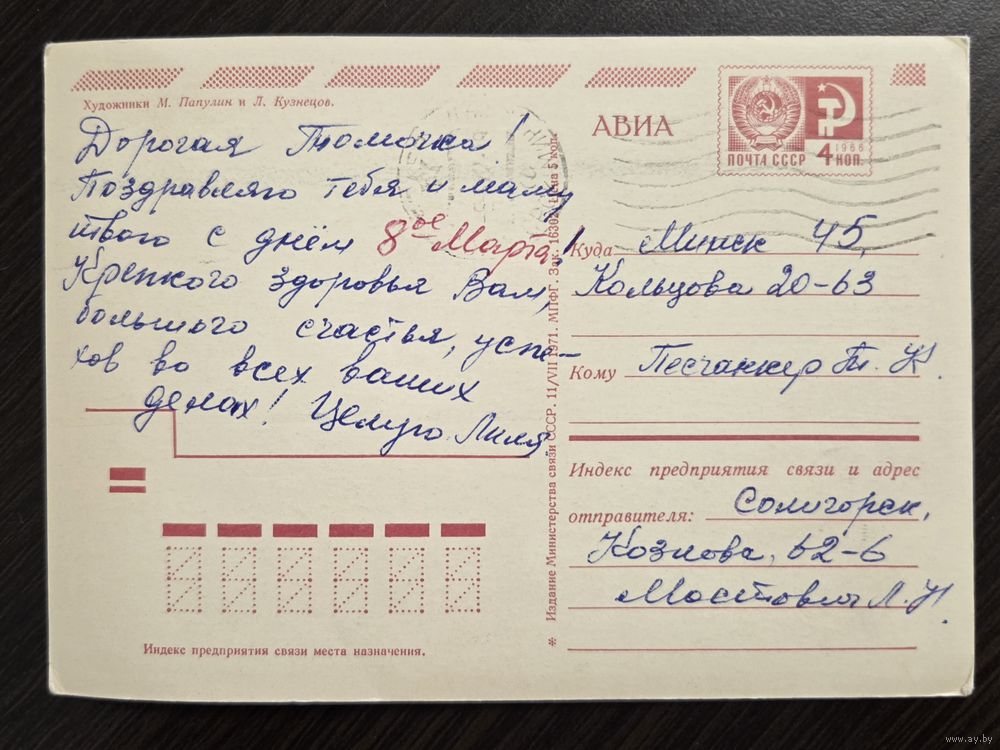 Художники М. Папулин и Л. Кузнецов.
Дорогая Томочка!
Поздравляю тебя и маму
твою с днём 8ое Марта!
Крепкого здоровья Вам,
большого счастья, успе-
хов во всех ваших
делах! Целую Лиля
Индекс предприятия связи места назначения.
* Издание Министерства связи СССР. 11/VII 1971. МПФГ. Зак. 16302. Цена 5 коп.
АВИА
ПОЧТА СССР
4 КОП.
1966
Куда Минск 45,
Кольцова 20-63
Кому Песчанкер Т. И.
Индекс предприятия связи и адрес
отправителя: Солигорск,
Козлова, 62-6
Мостовля Л. И.
www.ay.by